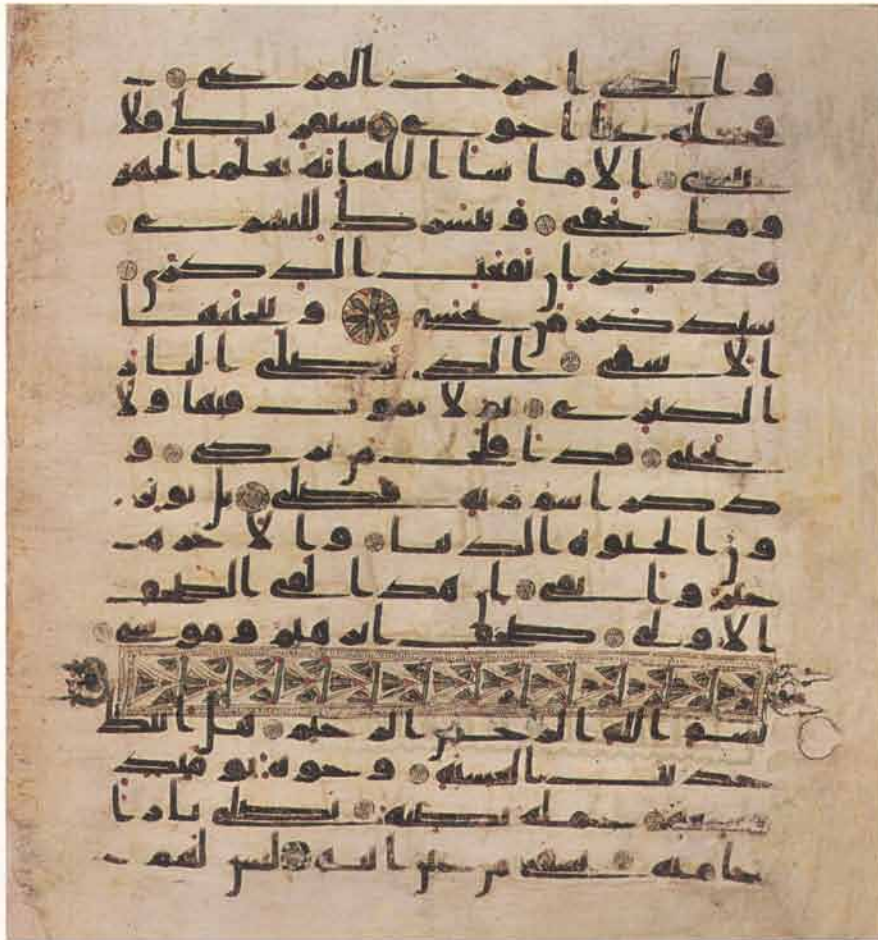 والذي اخرج المرعى
فجعله غثا احوى سنقرئك فلا
تنسى الا ما شا الله انه يعلم الجهر
وما يخفى ونيسرك لليسرى
فذكر ان نفعت الذكرى
سيذكر من يخشى ويتجنبها
الاشقى الذي يصلى النار
الكبرى ثم لا يموت فيها ولا
يحيى قد افلح من تزكى و
ذكر اسم ربه فصلى بل توثر
ون الحيوة الدنيا والاخرة
خير وابقى ان هذا لفى الصحف
الاولى صحف ابرهيم وموسى
بسم الله الرحمن الرحيم هل اتيك
حديث الغشية وجوه يومئذ
خشعة عملة ناصبة تصلى نارا
حامية تسقى من عين انية ليس لهم